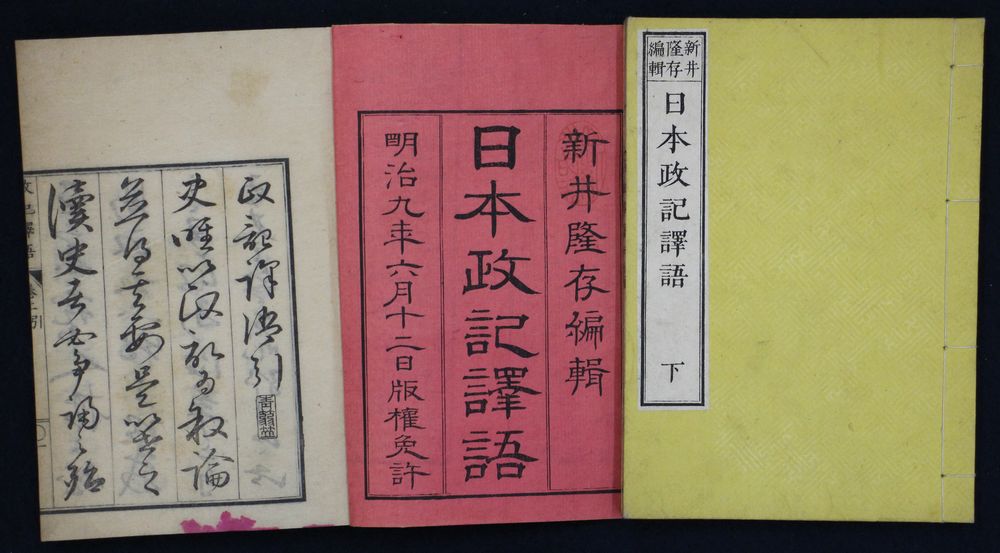 新井
隆存
編輯
日本政記譯語 下
新井隆存編輯
日本政記譯語
明治九年六月十二日版權免許
政記譯語引
史唯以政
得其要是以世之
讀史者必爭
政記譯語
引